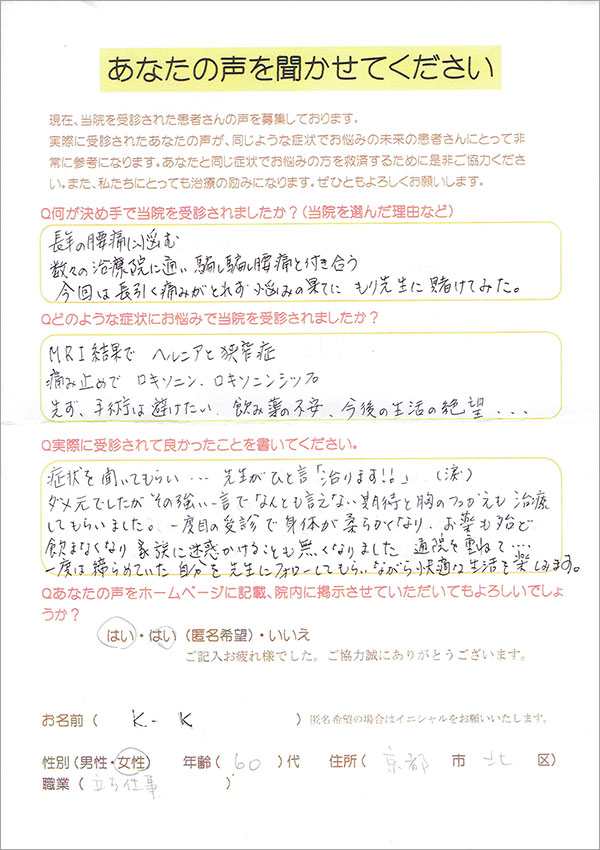 あなたの声を聞かせてください
現在、当院を受診された患者さんの声を募集しております。
実際に受診されたあなたの声が、同じような症状でお悩みの未来の患者さんにとって非
常に参考になります。あなたと同じ症状でお悩みの方を救済するために是非ご協力くださ
い。また、私たちにとっても治療の励みになります。ぜひともよろしくお願いします。
Q何が決め手で当院を受診されましたか?(当院を選んだ理由など)
長年の腰痛に悩む
数々の治療院に通い 騙し騙し腰痛と付き合う
今回は長引く痛みがとれず 悩みの果てに もり先生に賭けてみた。
Qどのような症状にお悩みで当院を受診されましたか?
MRI結果で ヘルニアと狭窄症
痛み止めで ロキソニン、ロキソニンシップ
先ず、手術は避けたい、飲み薬の不安、今後の生活の絶望...
Q実際に受診されて良かったことを書いてください。
症状を聞いてもらい... 先生がひと言「治ります!!」(涙)
ダメ元でしたが その強い一言で なんとも言えない期待と胸のつかえも 治療
してもらいました。一度目の受診で身体が柔らかくなり、お薬も殆ど
飲まなくなり 家族に迷惑かけることも無くなりました 通院を重ねて...
一度は諦めていた自分を先生にフォローしてもらいながら快適な生活を楽しみます。
Qあなたの声をホームページに記載、院内に掲示させていただいてもよろしいでしょ
うか?
はい・はい(匿名希望)・いいえ
ご記入お疲れ様でした。ご協力誠にありがとうございます。
お名前( K.K )匿名希望の場合はイニシャルをお願いいたします。
性別(男性・女性) 年齢( 60 )代 住所( 京都 市 北 区)
職業( 立ち仕事 )